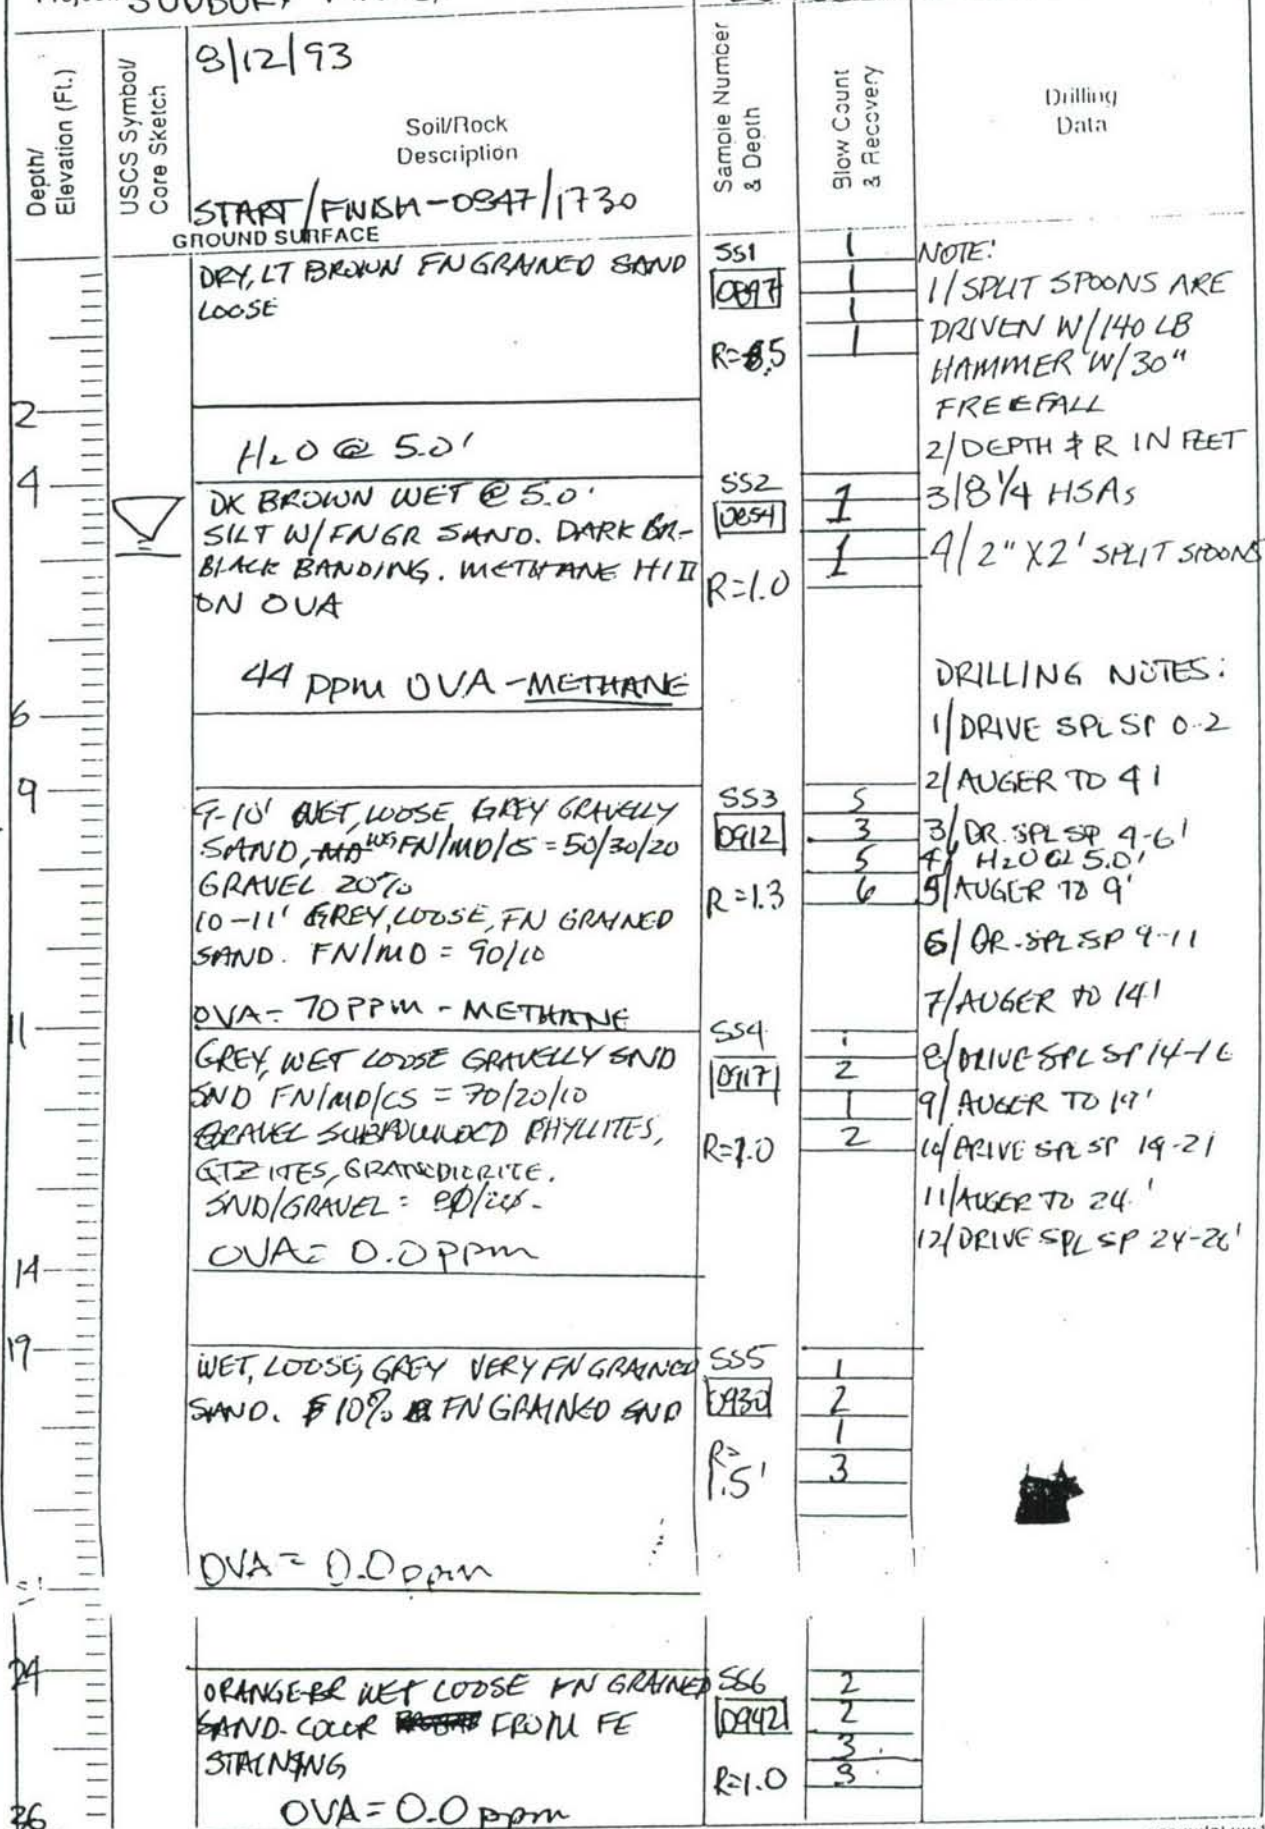 SUDBURY
Depth/
Elevation (Ft.)
USCS Symbol/
Core Sketch
8/12/93
Soil/Rock
Description
START/FINISH-0847/1730
GROUND SURFACE
Sample Number
& Depth
Blow Count
& Recovery
Drilling
Data
DRY, LT BROWN FN GRAINED SAND
LOOSE
SS1
0897
R= .5
1
1
1
1
NOTE:
1/ SPLIT SPOONS ARE
DRIVEN W/140 LB
HAMMER W/30"
FREEFALL
2/ DEPTH & R IN FEET
3/ 8 1/4 HSAs
4/ 2" X2' SPLIT SPOONS
2
H2O @ 5.0'
4
DK BROWN WET @ 5.0'
SILT W/FNGR SAND. DARK BR-
BLACK BANDING. METHANE
ON OVA
44 PPM OVA - METHANE
SS2
0854
R=1.0
1
1
DRILLING NOTES:
1/ DRIVE SPL SP 0-2
2/ AUGER TO 4'
3/ DR. SPL SP 4-6'
4/ H2O @ 5.0'
5/ AUGER TO 9'
6/ DR. SPL SP 9-11
7/ AUGER TO 14'
8/ DRIVE SPL SP 14-16
9/ AUGER TO 19'
10/ DRIVE SPL SP 19-21
11/ AUGER TO 24'
12/ DRIVE SPL SP 24-26'
6
9
9-10' WET, LOOSE, GREY GRAVELLY
SAND, FN/MD/CS = 50/30/20
GRAVEL 20%
10-11' GREY, LOOSE, FN GRAINED
SAND. FN/MD = 90/10
OVA = 70 PPM - METHANE
SS3
0912
R=1.3
5
3
5
6
11
GREY, WET LOOSE GRAVELLY SND
SND FN/MD/CS = 70/20/10
GRAVEL SUBROUNDED PHYLLITES,
QTZITES, GRANODIORITE.
SND/GRAVEL =
OVA = 0.0 PPM
SS4
0917
R=1.0
1
2
1
2
14
19
WET, LOOSE, GREY VERY FN GRAINED
SAND. 10% FN GRAINED SND
OVA = 0.0 ppm
SS5
0930
R=
1.5'
1
2
1
3
24
ORANGE BR WET LOOSE FN GRAINED
SAND - COLOR FROM FE
STAINING
OVA = 0.0 ppm
SS6
0942
R=1.0
2
2
3
3
26